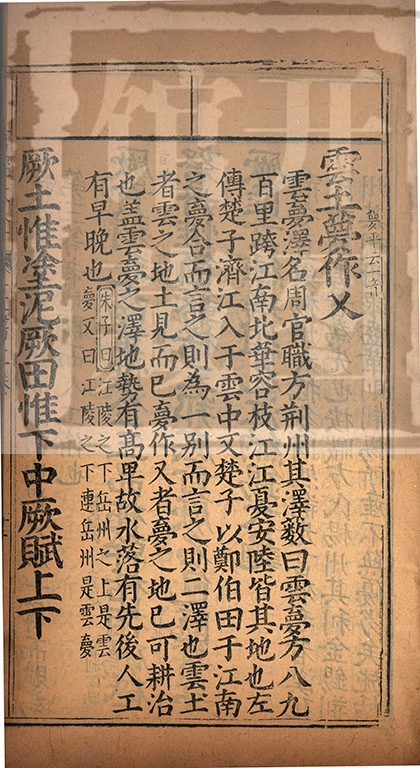 雲土夢作乂
雲夢澤名周官職方荆州其澤藪曰雲夢方八九
百里跨江南北華容枝江江夏安陸皆其地也左
傳楚子濟江入于雲中又楚子以鄭伯田于江南
之夢合而言之則為一别而言之則二澤也雲土
者雲之地土見而已夢作乂者夢之地已可耕治
也盖雲夢之澤地勢有高卑故水落有先後人工
有早晚也朱子曰江陵之下岳州之上是雲
夢又曰江陵之下連岳州是雲夢
厥土惟塗泥厥田惟下中厥賦上下